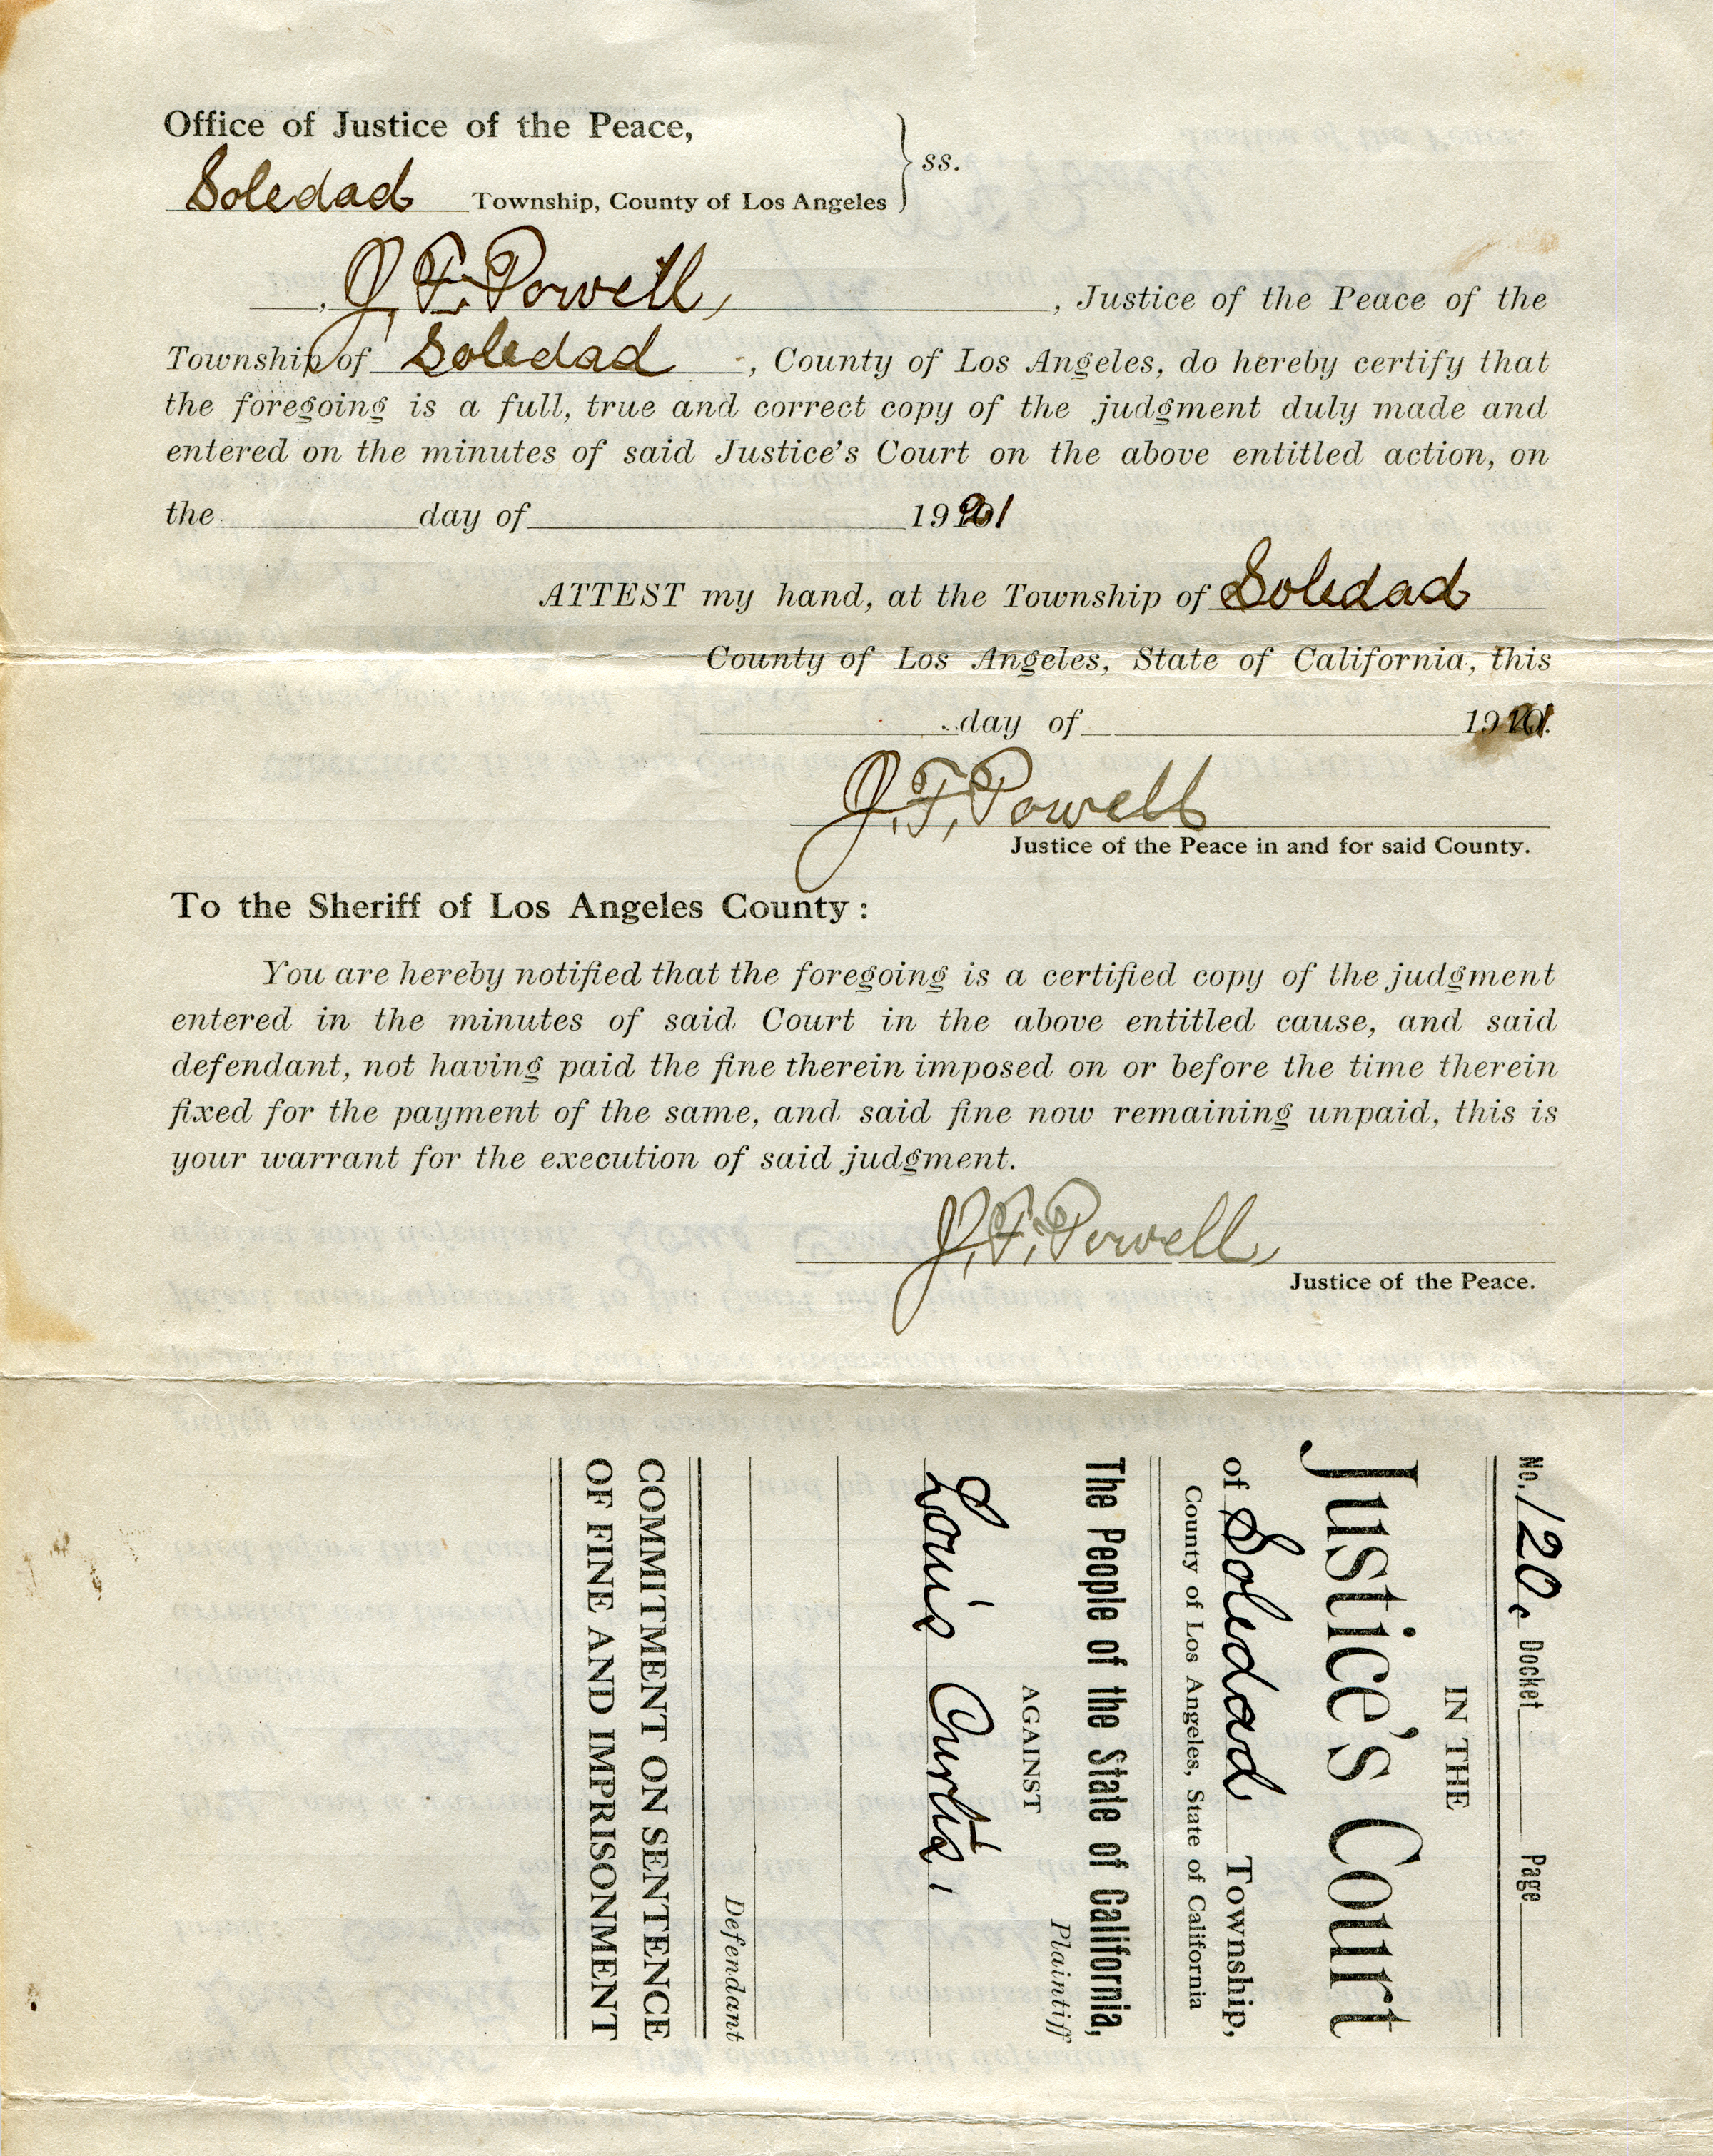 Office of Justice of the Peace,
ss.
Soledad Township, County of Los Angeles
J. F. Powell, , Justice of the Peace of the
Township of Soledad , County of Los Angeles, do hereby certify that
the foregoing is a full, true and correct copy of the judgment duly made and
entered on the minutes of said Justice's Court on the above entitled action, on
the day of 1921
ATTEST my hand, at the Township of Soledad
County of Los Angeles, State of California, this
day of 1921.
J. F. Powell
Justice of the Peace in and for said County.
To the Sheriff of Los Angeles County:
You are hereby notified that the foregoing is a certified copy of the judgment
entered in the minutes of said Court in the above entitled cause, and said
defendant, not having paid the fine therein imposed on or before the time therein
fixed for the payment of the same, and said fine now remaining unpaid, this is
your warrant for the execution of said judgment.
J. F. Powell,
Justice of the Peace.
No. 120c Docket Page
IN THE
Justice's Court
of Soledad Township,
County of Los Angeles, State of California
The People of the State of California,
Plaintiff
AGAINST
Louis Curtis,
Defendant
COMMITMENT ON SENTENCE
OF FINE AND IMPRISONMENT